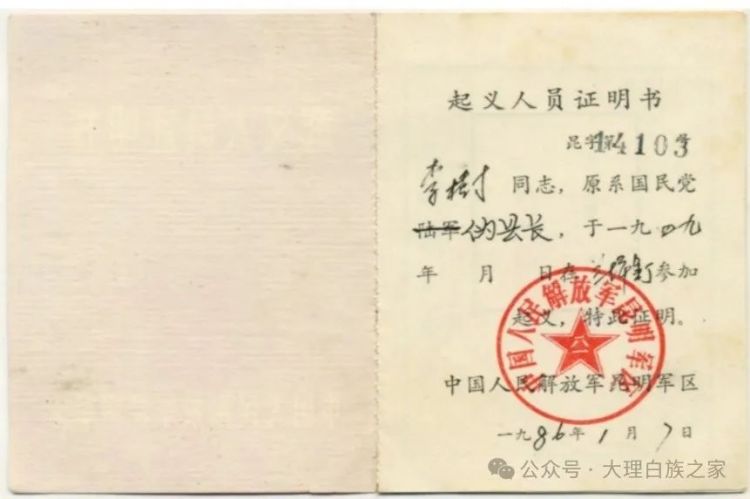 起义人员证明书
昆字第14103号
李树 同志，原系国民党
陆军伪县长，于一九四九
年 月 日在 参加
起义，特此证明。
中国人民解放军昆明军区
中国人民解放军昆明军区
一九86年1月7日
公众号·大理白族之家